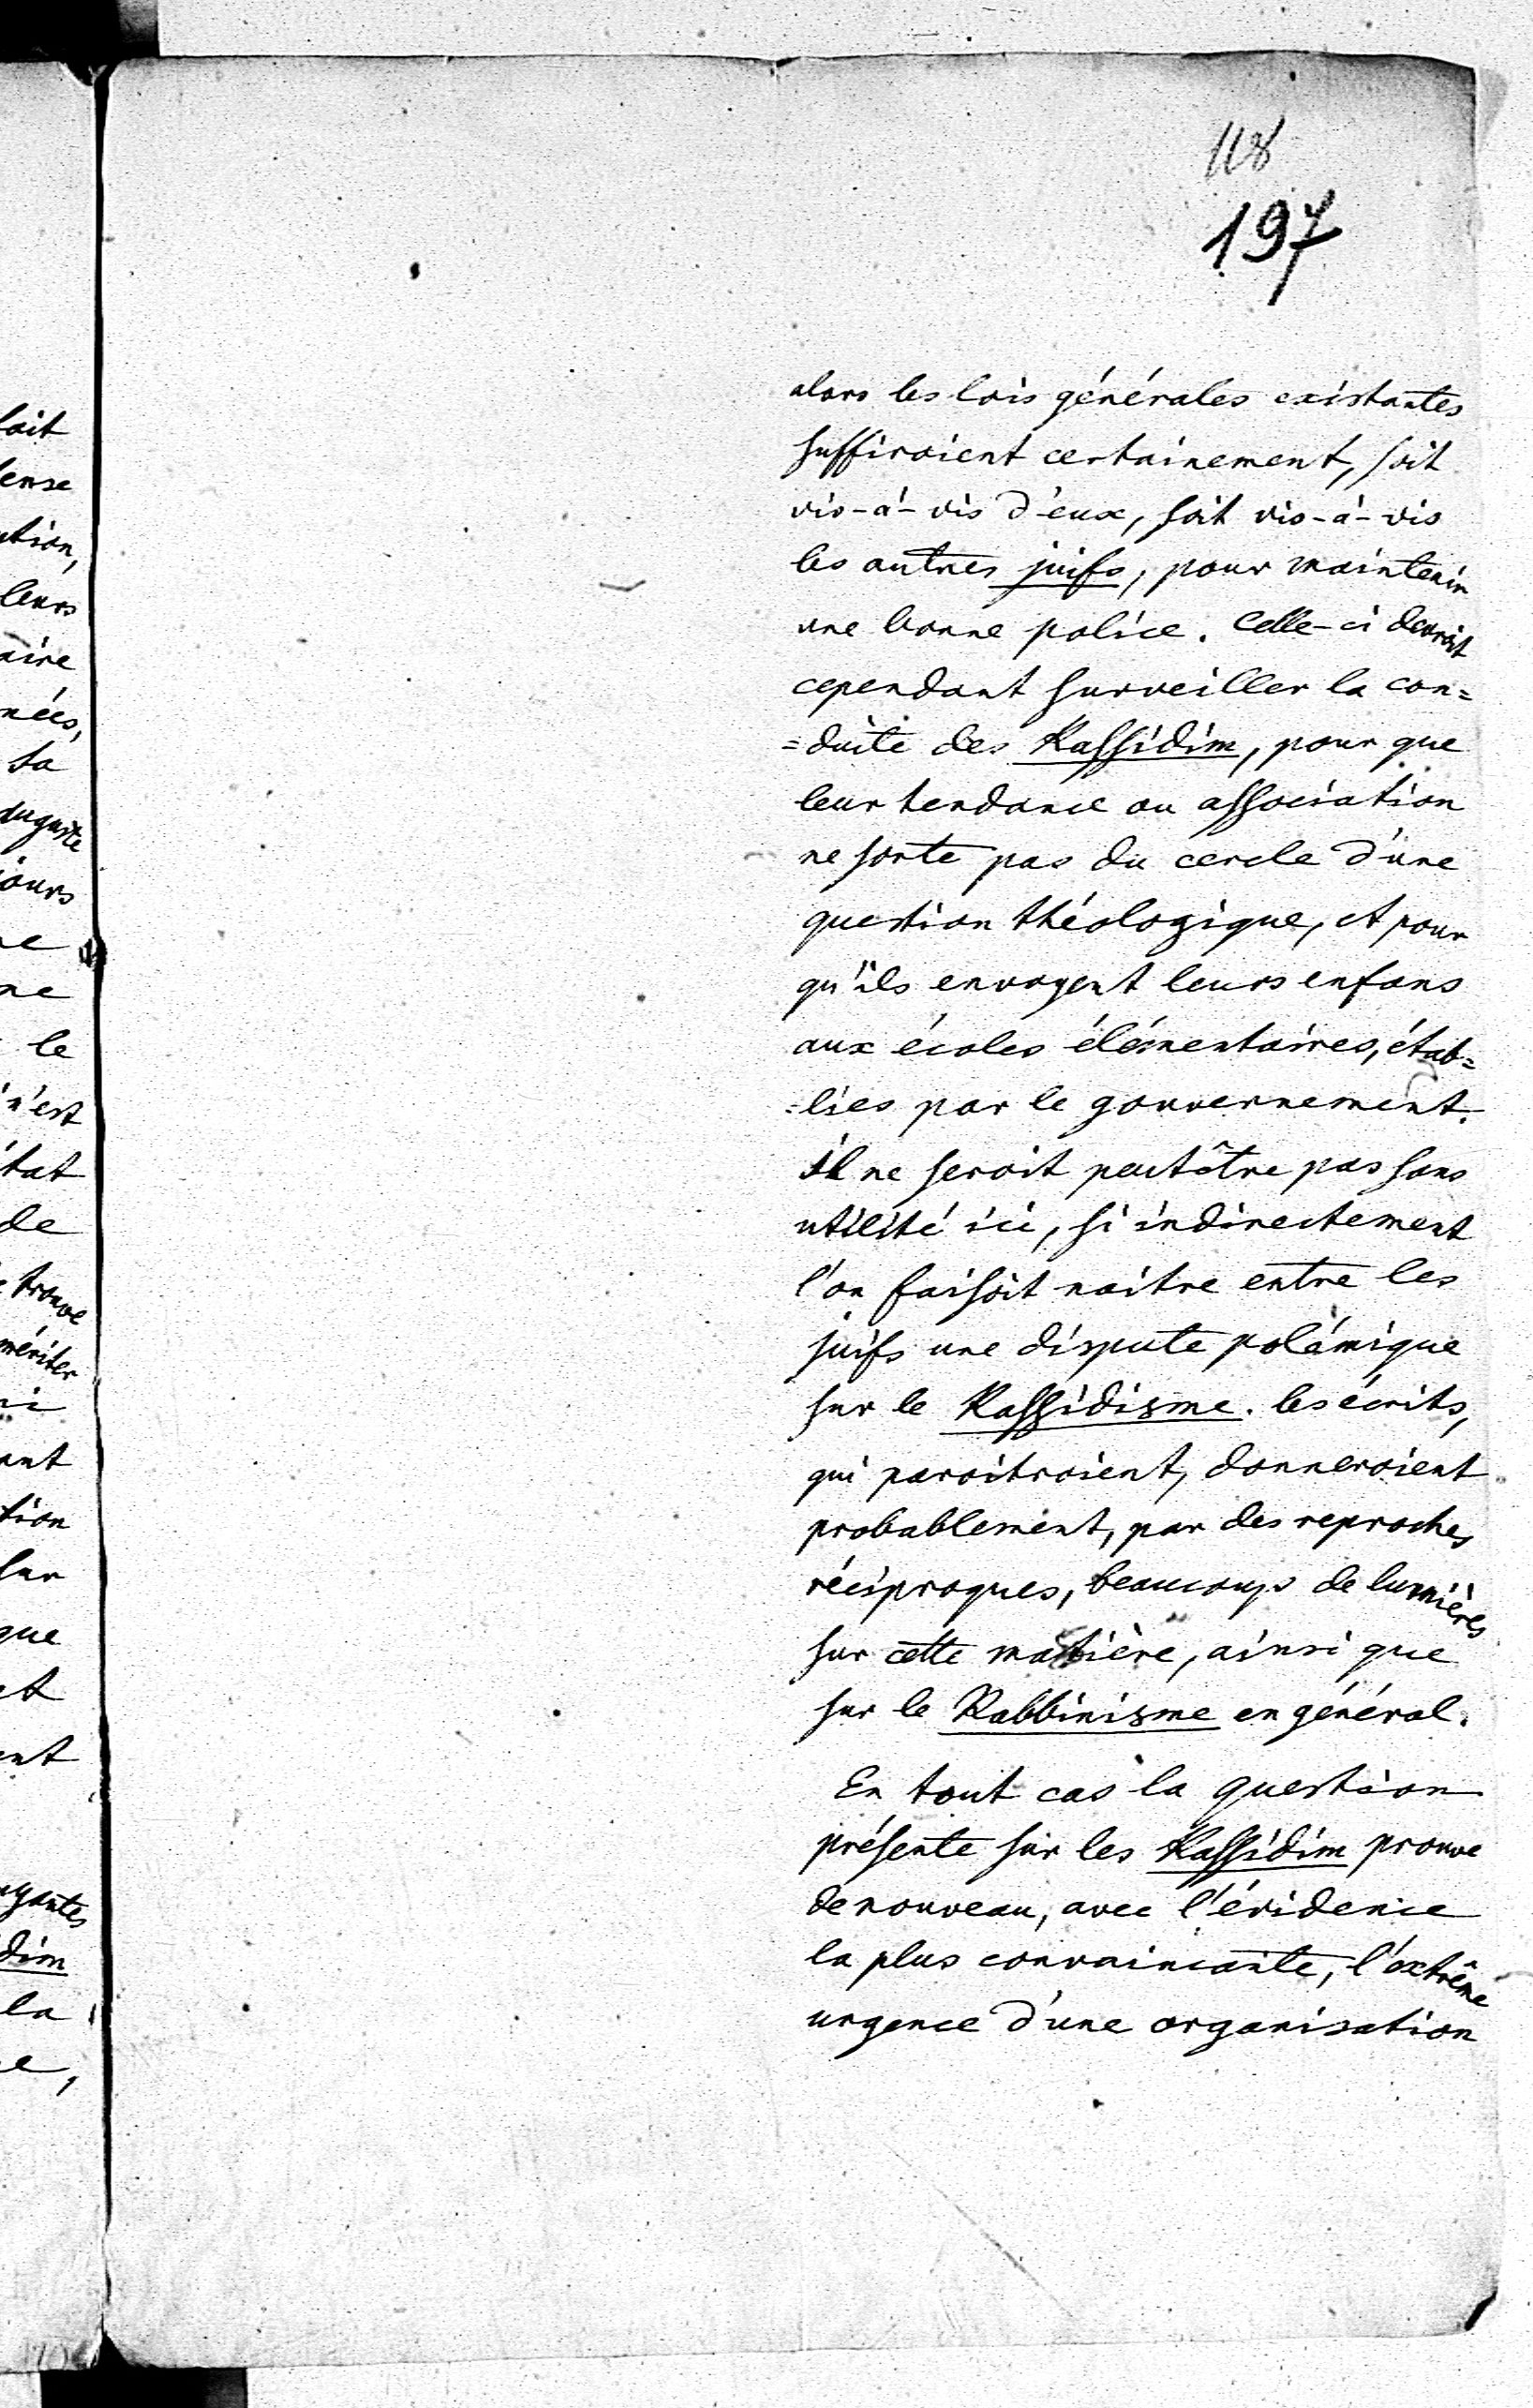 118
197
alors les lois générales existantes
suffiroient certainement, soit
vis-à-vis d'eux, soit vis-à-vis
les autres juifs, pour maintenir
une bonne police. Celle-ci devroit
cependant surveiller la con=
=duite des Kassidim, pour que
leur tendance ou association
ne sorte pas du cercle d'une
question théologique, et pour
qu'ils envoyent leurs enfans
aux écoles élémentaires, étab=
=lies par le gouvernement.
il ne seroit peutêtre pas sans
utilité ici, si indirectement
l'on faisoit naitre entre les
juifs une dispute polémique
sur le Kassidisme. les écrits,
qui paroitroient, donneroient
probablement, par des reproches
réciproques, beaucoup de lumières
sur cette matière, ainsi que
sur le Rabbinisme en général.
En tout cas la question
présente sur les Kassidim prouve
de nouveau, avec l'évidence
la plus convaincante, l'extrême
urgence d'une organisation